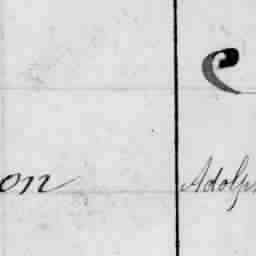 on Adolp